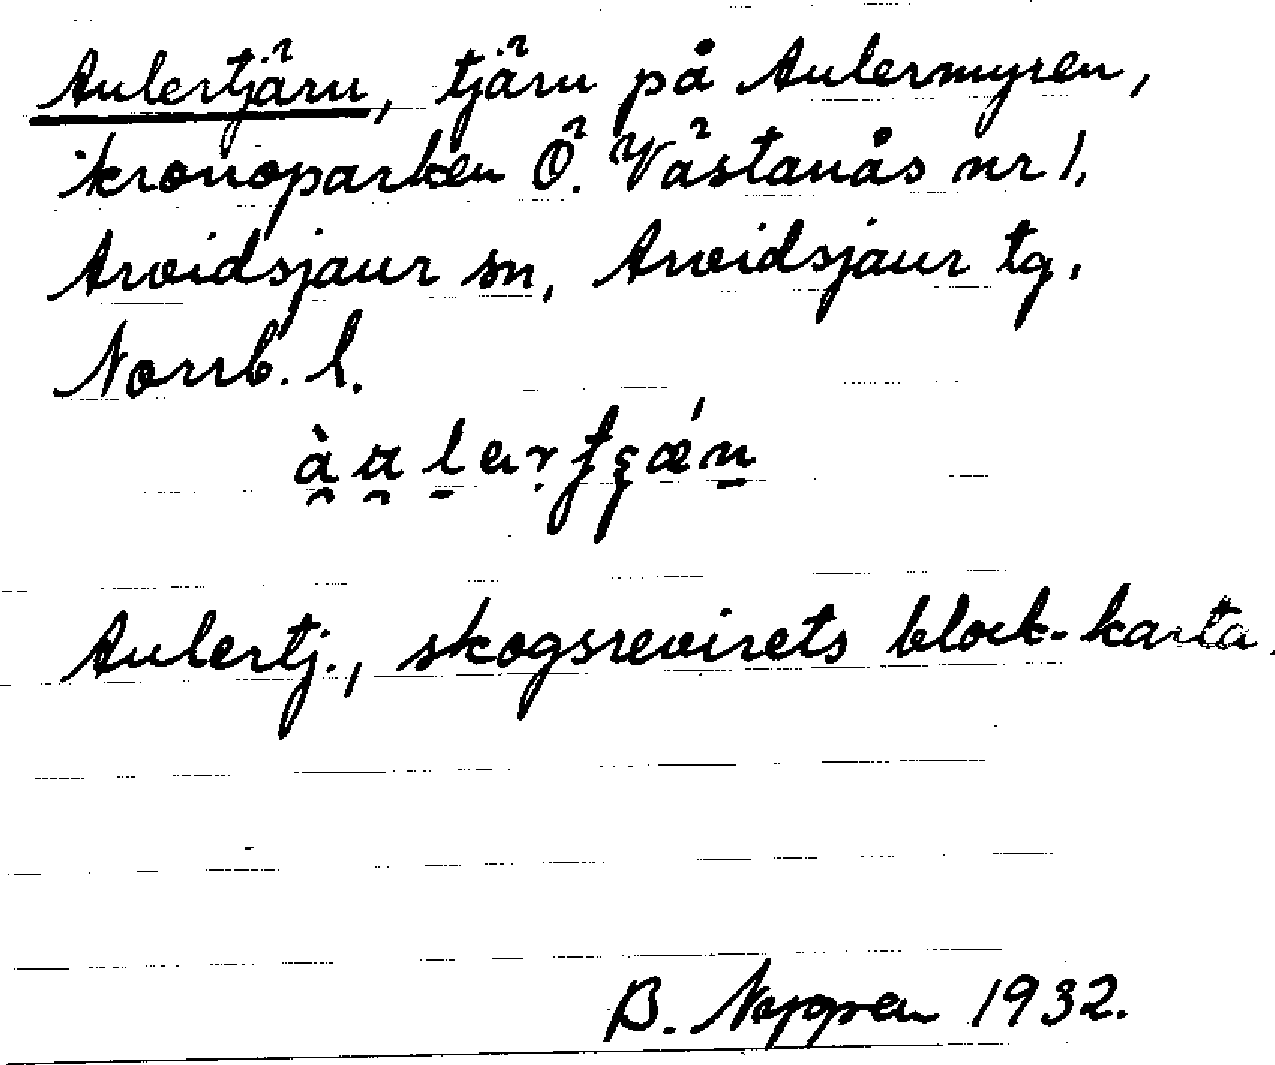 Aulertjärn, tjärn på Aulermyren,
kronoparken Ö. Västanås nr 1,
Arvidsjaur sn, Arvidsjaur tg,
Norrb. l.
Aulertj., skogsrevirets block-karta.
B. 1932.